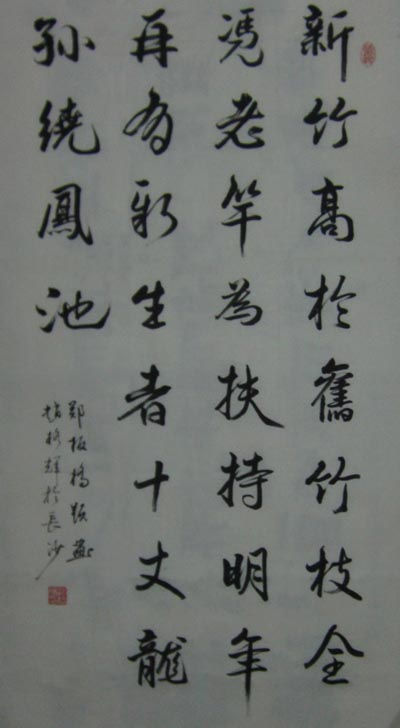 新竹高於舊竹枝全
憑老竿為扶持明年
再有新生者十丈龍
孫繞鳳池
鄭板橋題畫
輝於長沙